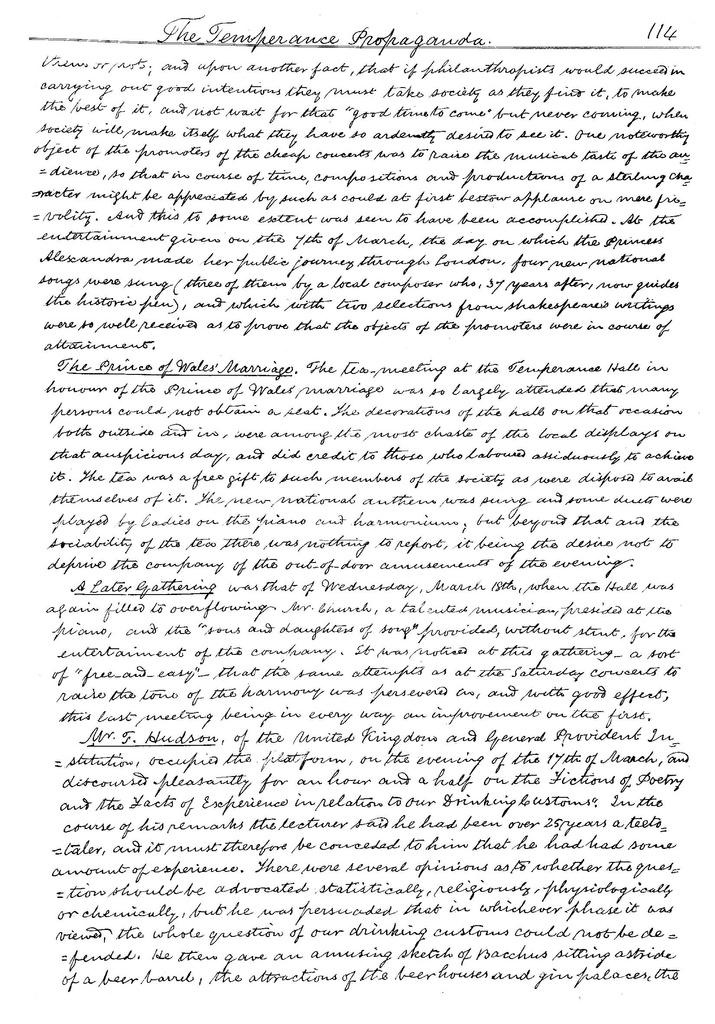 The Temperance Propaganda. 114
them or not; and upon another fact, that if philanthropists would succeed in
carrying out good intentions they must take society as they find it, to make
the best of it, and not wait for that "good time to come" but never coming, when
society will make itself what they have so ardently desired to see it. One noteworthy
object of the promoters of the cheap concerts was to raise the musical taste of the au=
=dience, so that in course of time, compositions and productions of a sterling cha=
=racter might be appreciated by such as could at first bestow applause on mere fri=
=volity. And this to some extent was seen to have been accomplished. At the
entertainment given on the 7th of March, the day on which the Princess
Alexandra made her public journey through London, four new national
songs were sung (three of them by a local composer who, 37 years after, now guides
the historic pen), and which with two selections from Shakespeare's writings
were so well received as to prove that the objects of the promoters were in course of
attainment.
The Prince of Wales' Marriage. The tea-meeting at the Temperance Hall in
honour of the Prince of Wales' marriage was so largely attended that many
persons could not obtain a seat. The decorations of the hall on that occasion
both outside and in, were among the most chaste of the local displays on
that auspicious day, and did credit to those who laboured assiduously to achieve
it. The tea was a free gift to such members of the society as were disposed to avail
themselves of it. The new national anthem was sung and some duets were
played by ladies on the piano and harmonium; but beyond that and the
sociability of the tea there was nothing to report, it being the desire not to
deprive the company of the out-of-door amusements of the evening.
A Later Gathering was that of Wednesday, March 18th, when the Hall was
again filled to overflowing. Mr. Church, a talented musician, presided at the
piano, and the "sons and daughters of song" provided, without stint, for the
entertainment of the company. It was noticed at this gathering - a sort
of "free-and-easy" - that the same attempts as at the Saturday concerts to
raise the tone of the harmony was persevered in, and with good effect,
this last meeting being in every way an improvement on the first.
Mr. F. Hudson, of the United Kingdom and General Provident In=
=stitution, occupied the platform, on the evening of the 17th of March, and
discoursed pleasantly for an hour and a half on the Fictions of Poetry
and the Facts of Experience in relation to our Drinking Customs". In the
course of his remarks the lecturer said he had been over 25 years a teeto=
=taler, and it must therefore be conceded to him that he had had some
amount of experience. There were several opinions as to whether the ques=
=tion should be advocated statistically, religiously, physiologically
or chemically, but he was persuaded that in whichever phase it was
viewed, the whole question of our drinking customs could not be de=
=fended. He then gave an amusing sketch of Bacchus sitting astride
of a beer barrel, the attractions of the beer houses and gin palaces, the